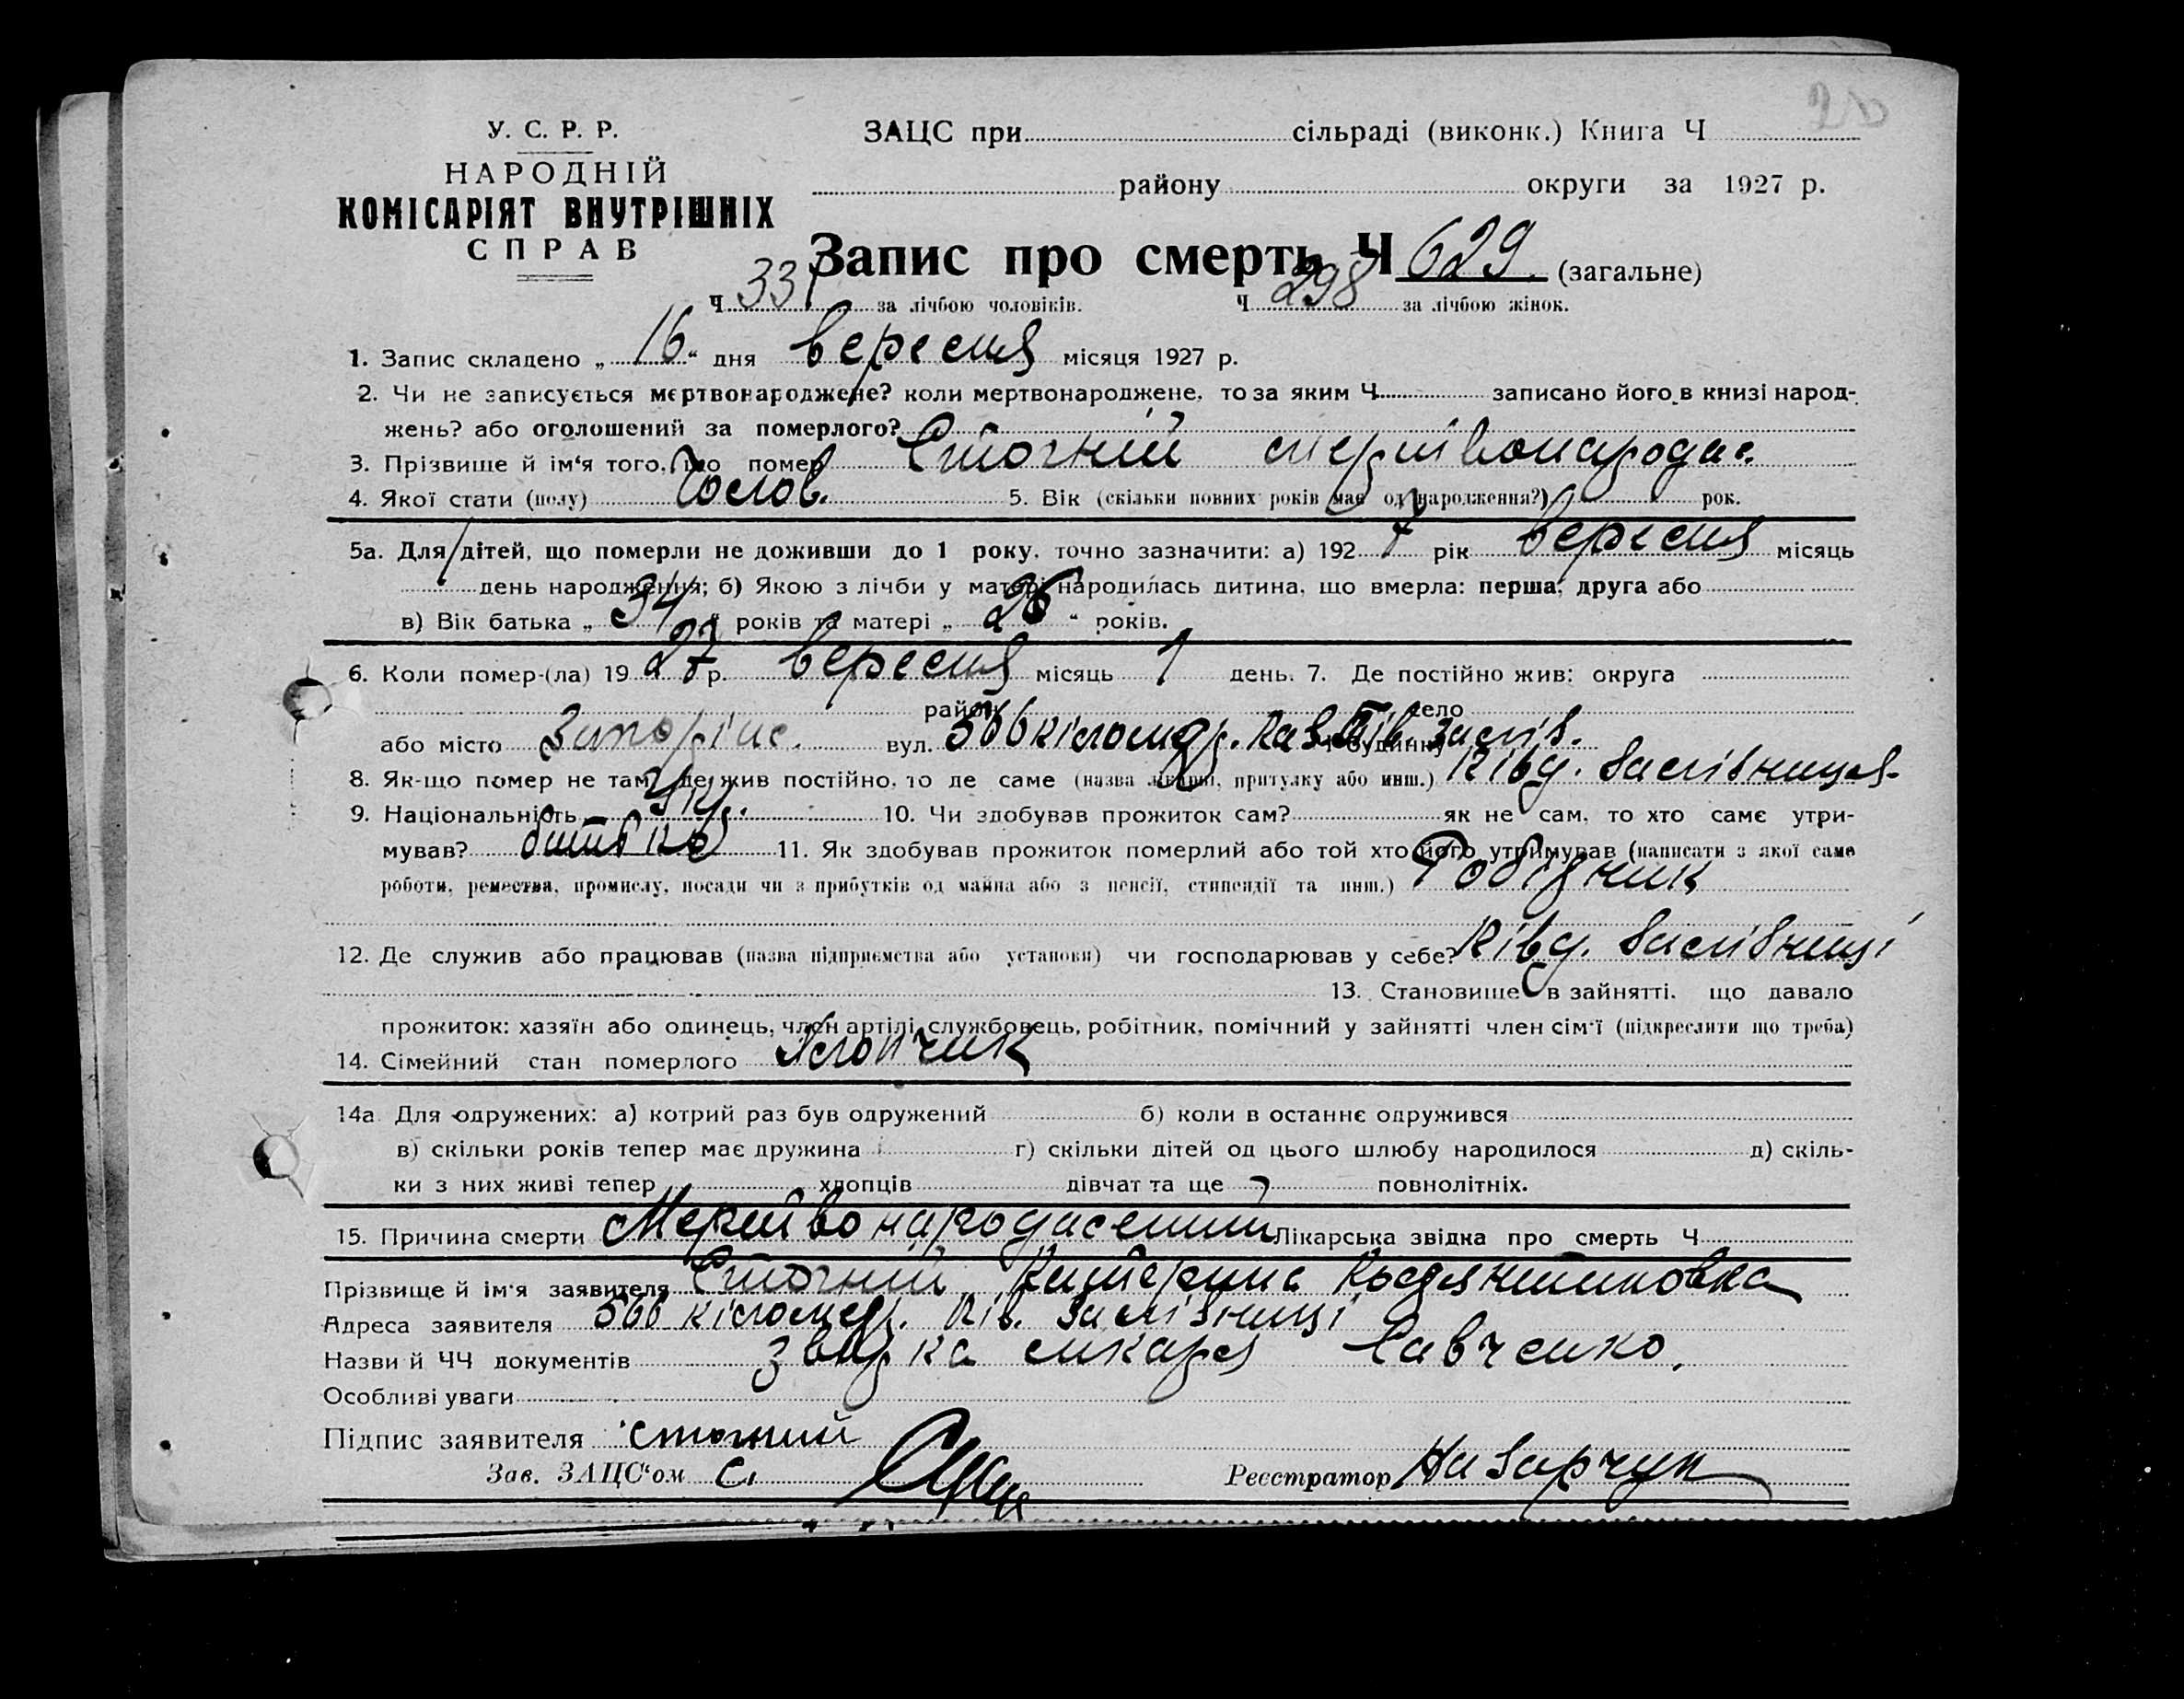 У. С. Р. Р.
НАРОДНІЙ
КОМІСАРІЯТ ВНУТРІШНІХ
СПРАВ
ЗАЦС при сільраді (виконк.) Книга Ч
району округи за 1927 р.
Запис про смерть Ч 629 (загальне)
Ч 331 за лічбою чоловіків. Ч 298 за лічбою жінок.
1. Запис складено „ 16 “ дня вересня місяця 1927 р.
2. Чи не записується мертвонароджене? коли мертвонароджене, то за яким Ч записано його в книзі народ-
жень? або оголошений за померлого?
3. Прізвище й ім‘я того, що помер Сточний мертвонародж.
4. Якої стати (полу) Чолов. 5. Вік (скільки повних років має од народження?) рок.
5а. Для дітей, що померли не доживши до 1 року, точно зазначити: а) 192 7 рік вересня місяць
день народження; б) Якою з лічби у матері народилась дитина, що вмерла: перша, друга або
в) Вік батька „ 34 “ років та матері „ 26 “ років.
6. Коли помер-(ла) 19 27 р. вересня місяць 1 день. 7. Де постійно жив: округа
район село
або місто Запоріж. вул. 566 кілометр. будинку
8. Як-що помер не там, де жив постійно, то де саме (назва лікарні, притулку або инш.) Півд. Залізниця
9. Національність Укр. 10. Чи здобував прожиток сам? як не сам, то хто саме утри-
мував? батько 11. Як здобував прожиток померлий або той хто його утримував (написати з якої саме
роботи, ремества, промислу, посади чи з прибутків од майна або з пенсії, стипендії та инш.) Робізник
12. Де служив або працював (назва підприємства або установи) чи господарював у себе? Півд. Залізниці
13. Становище в зайнятті, що давало
прожиток: хазяїн або одинець, член артілі, службовець, робітник, помічний у зайнятті член сім‘ї (підкреслити що треба)
14. Сімейний стан померлого Хлопчик
14а. Для одружених: а) котрий раз був одружений б) коли в останнє одружився
в) скільки років тепер має дружина г) скільки дітей од цього шлюбу народилося д) скіль-
ки з них живі тепер хлопців дівчат та ще повнолітніх.
15. Причина смерти Мертвонароджений Лікарська звідка про смерть Ч
Прізвище й ім‘я заявителя Сточний Катерина
Адреса заявителя 566 кілометр. Пів. Залізниці
Назви й ЧЧ документів звідка лікаря Савченко.
Особливі уваги
Підпис заявителя Сточний
Зав. ЗАЦС‘ом
Реєстратор Назарчук